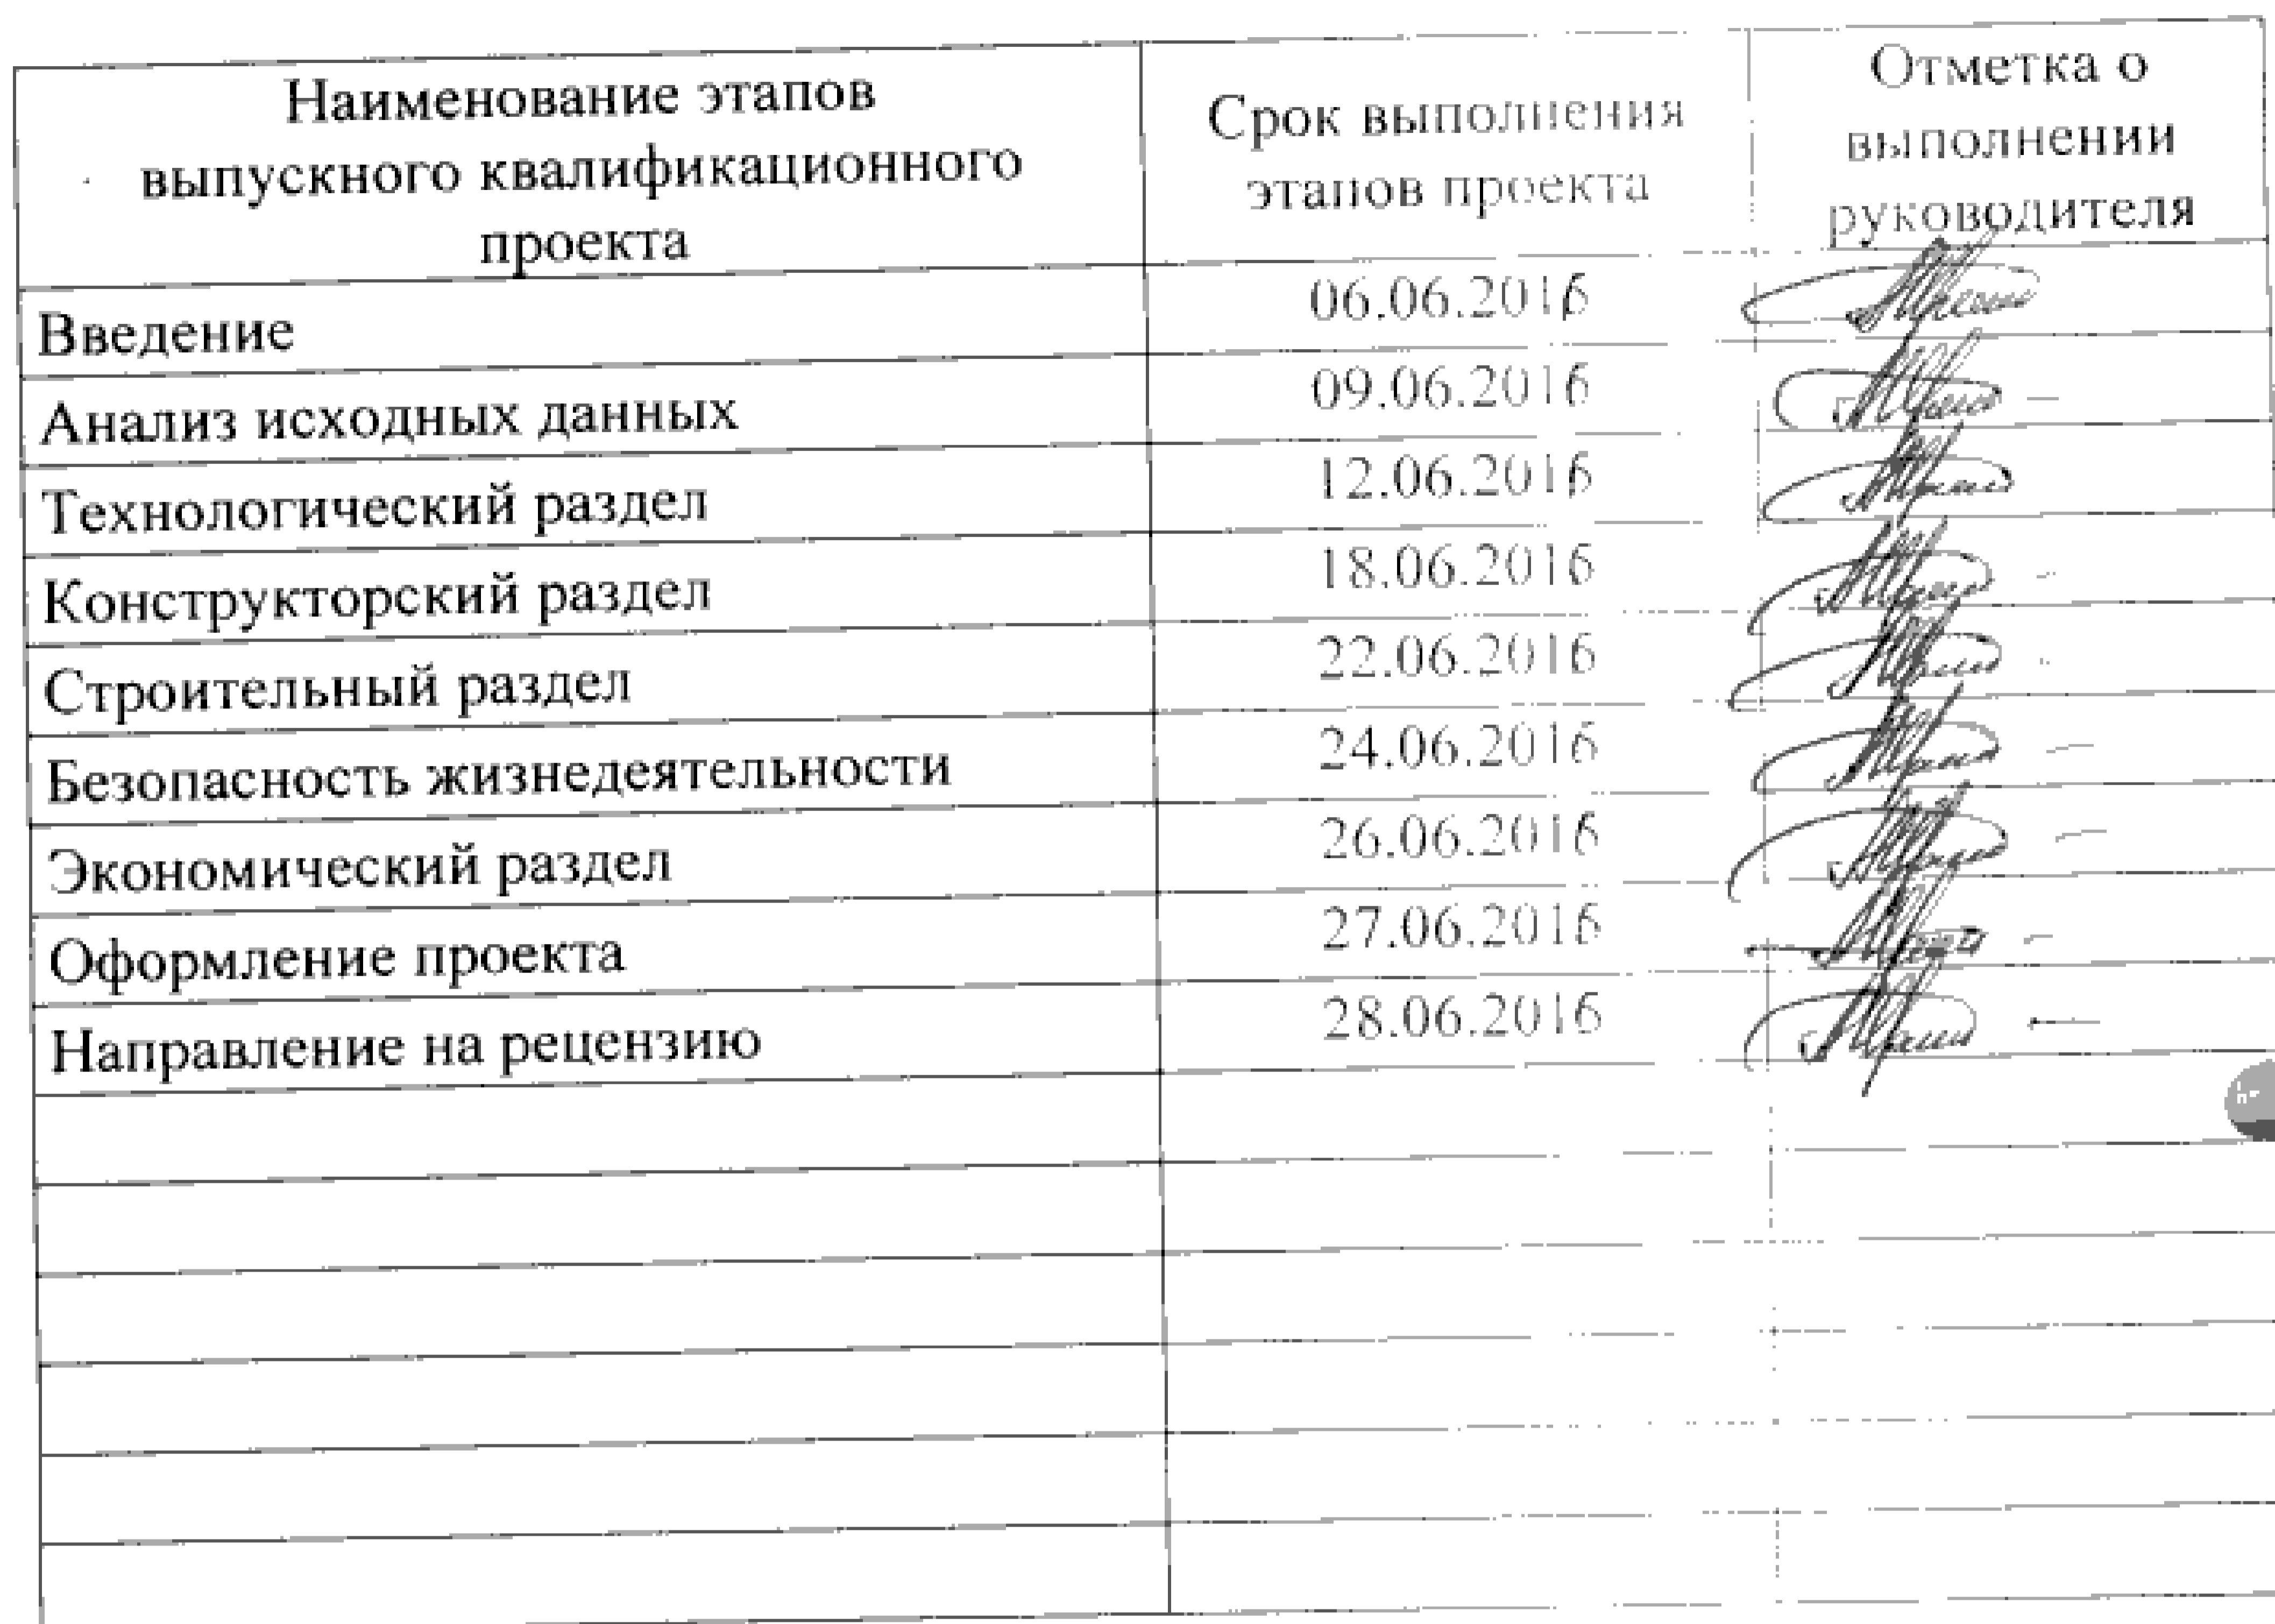 Наименование этапов
выпускного квалификационного
проекта
Срок выполнения
этапов проекта
Отметка о
выполнении
руководителя
Введение
06.06.2016
Анализ исходных данных
09.06.2016
Технологический раздел
12.06.2016
Конструкторский раздел
18.06.2016
Строительный раздел
22.06.2016
Безопасность жизнедеятельности
24.06.2016
Экономический раздел
26.06.2016
Оформление проекта
27.06.2016
Направление на рецензию
28.06.2016